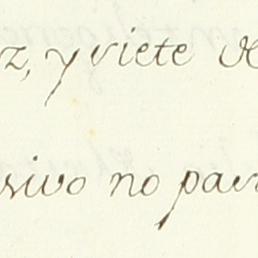 z, y viete
sivo no pa